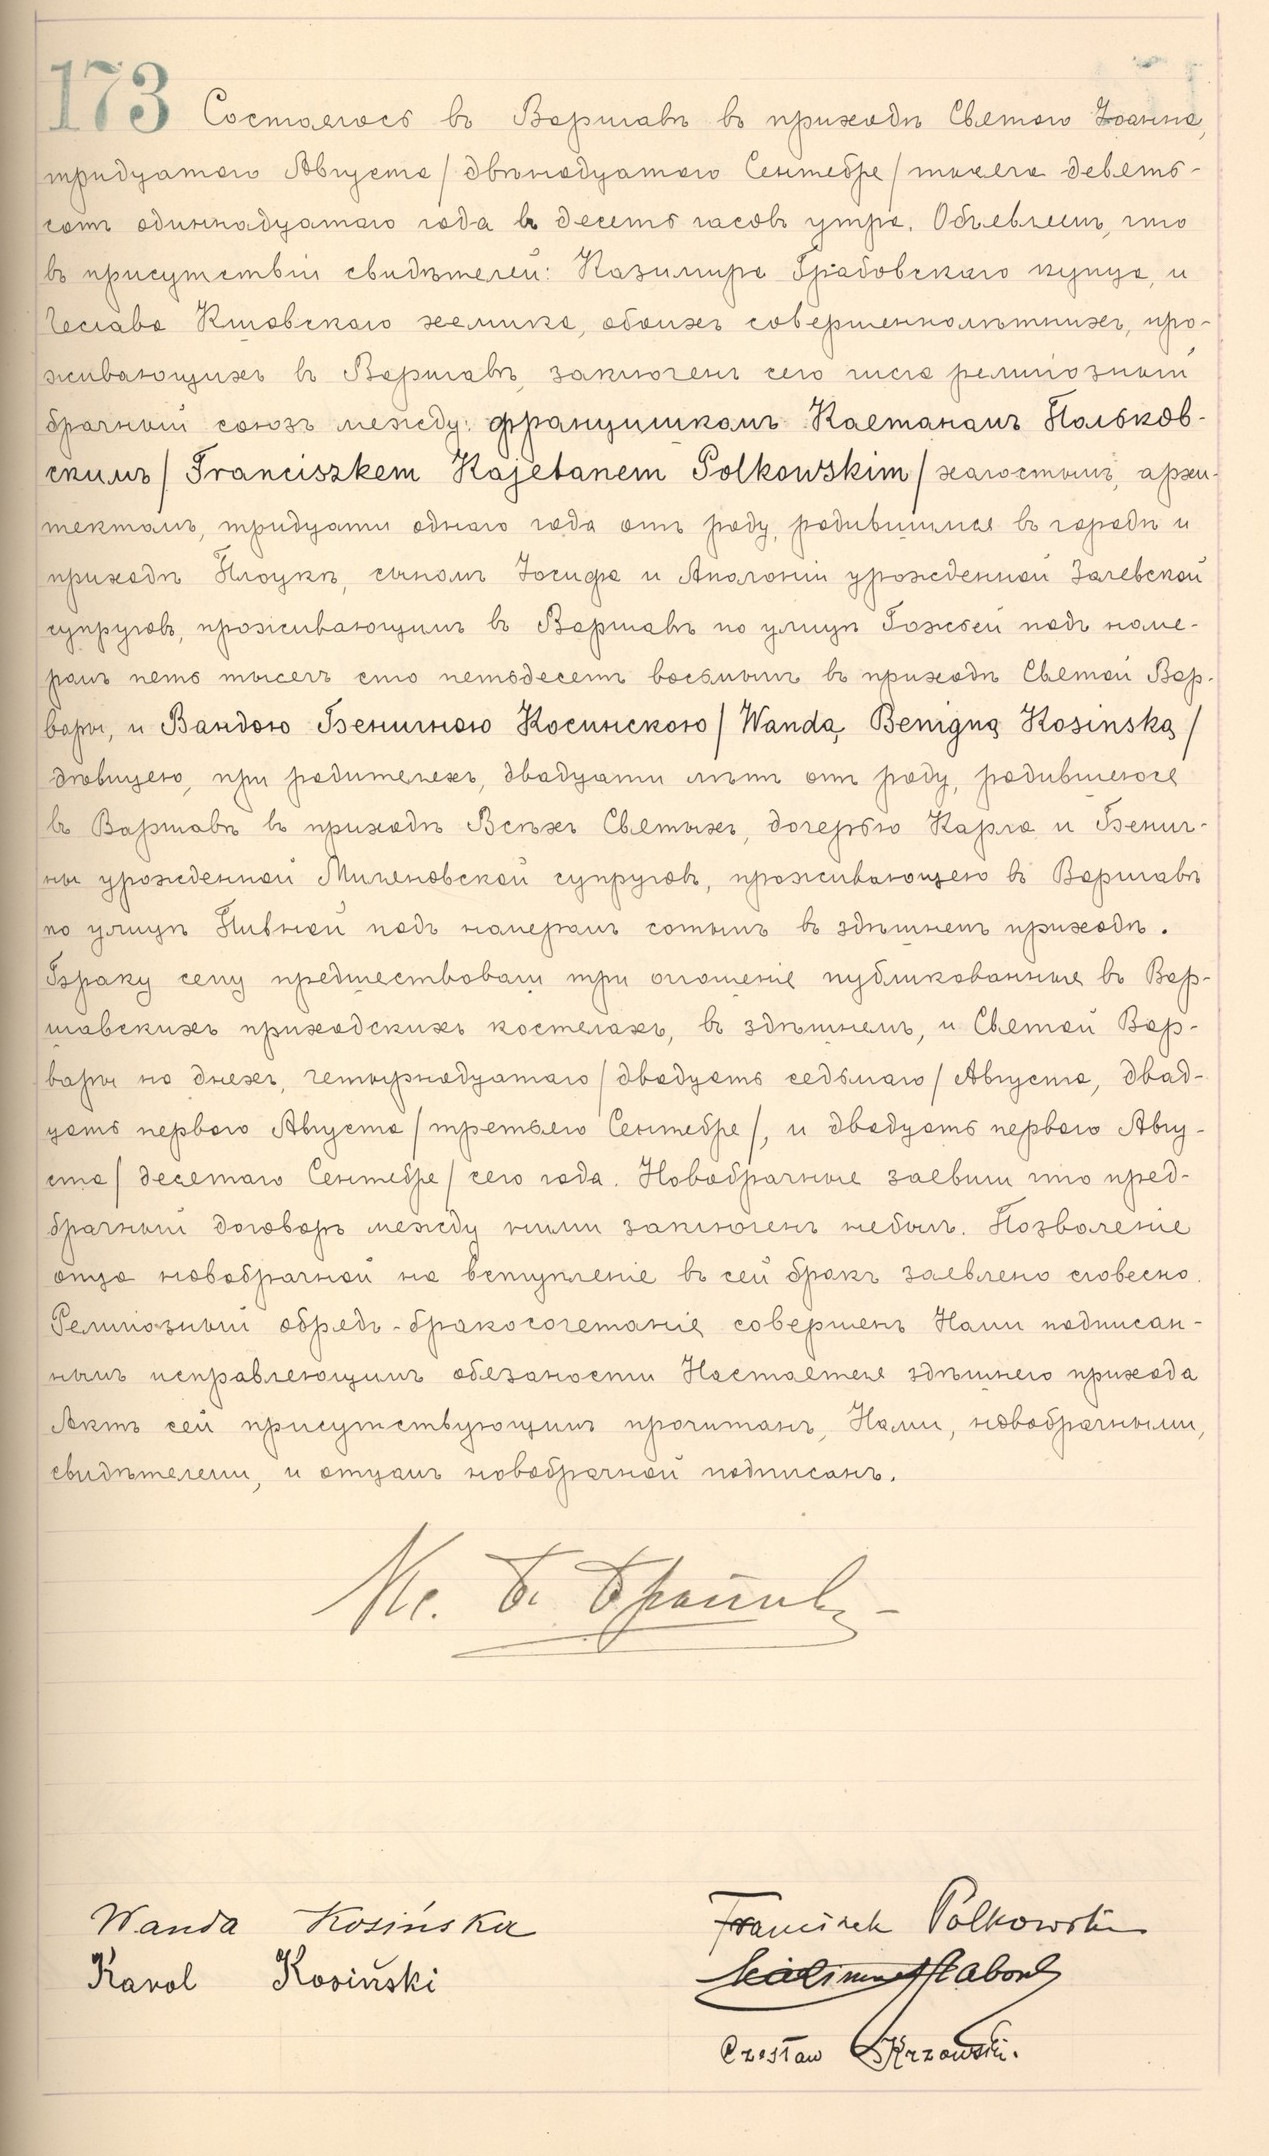 173 Состоялось въ Варшавѣ въ приходѣ Святого Іоанна,
тридцатаго Августа / двѣнадцатаго Сентября / тысяча девять-
сотъ одиннадцатаго года въ десять часовъ утра. Объявляемъ, что
въ присутствіи свидѣтелей: Казимира Грабовскаго купца, и
Чеслава Кшовскаго химика, обоихъ совершеннолѣтнихъ, про-
живающихъ въ Варшавѣ, заключенъ сего числа религіозный
брачный союзъ между: Францишкомъ Каетаномъ Польков-
скимъ / Franciszkem Kajetanem Polkowskim / холостымъ, архи-
текторомъ, тридцати одного года отъ роду, родившимся въ городѣ и
приходѣ Плоцкѣ, сыномъ Іосифа и Аполоніи урожденной Залевской
супруговъ, проживающимъ въ Варшавѣ по улицѣ Гожьей подъ номе-
ромъ пять тысячъ сто пятьдесятъ восьмымъ въ приходѣ Святой Вар-
вары, и Вандою Бенигною Косинскою / Wandą Benigną Kosinską /
дѣвицею, при родителяхъ, двадцати лѣтъ отъ роду, родившеюся
въ Варшавѣ въ приходѣ Всѣхъ Святыхъ, дочерью Карла и Бениг-
ны урожденной супруговъ, проживающею въ Варшавѣ
по улицѣ Пивной подъ номеромъ сотымъ въ здѣшнемъ приходѣ.
Браку сему предшествовали три оглошенія публикованныя въ Вар-
шавскихъ приходскихъ костелахъ, въ здѣшнемъ, и Святой Вар-
вары но дняхъ, четырнадцатаго / двадцать седьмаго / Августа, двад-
цать перваго Августа / третьяго Сентября /, и двадцать перваго Авгу-
ста / десятаго Сентября / сего года. Новобрачные заявили что пред-
брачный договоръ между ними заключенъ небылъ. Позволеніе
отца новобрачной на вступленіе въ сей бракъ заявлено словесно.
Религіозный обрядъ - бракосочетанія совершенъ Нами подписан-
нымъ исправляющимъ обязаности Настоятеля здѣшняго прихода
Актъ сей присутствующимъ прочитанъ, Нами, новобрачными,
свидѣтелями, и отцомъ новобрачной подписанъ.
Кс.
Wanda Kosińska
Karol Kosiński
Franciszek Polkowski
Czesław Krzowski.